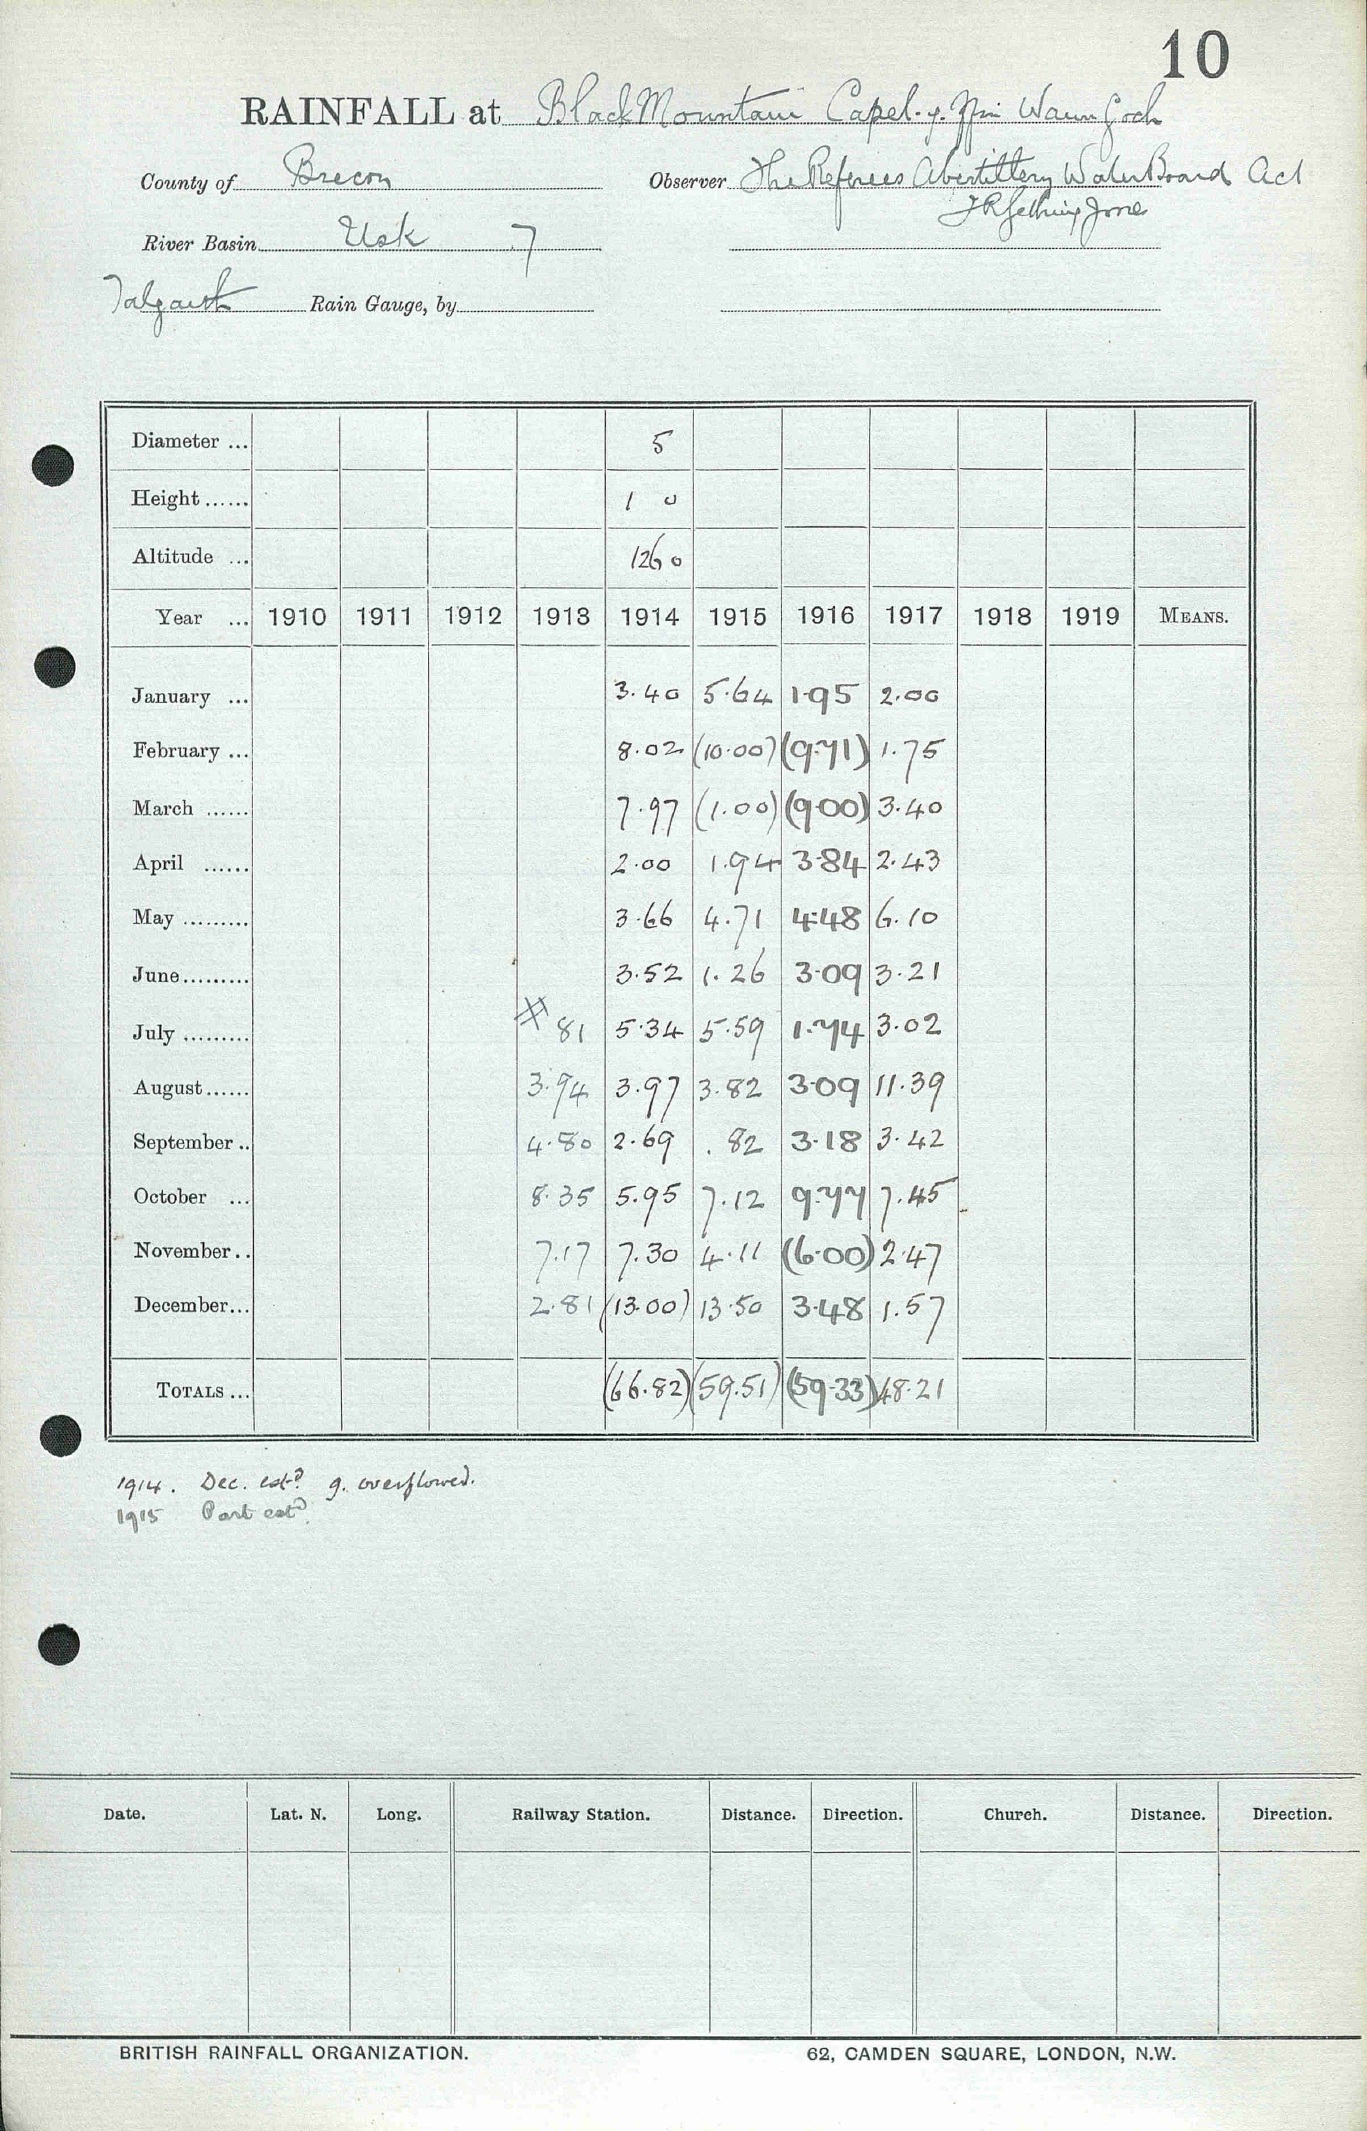 10
RAINFALL at Black Mountain Capel. y. ffin Waun Goch
County of Brecon Observer The Referees Abertillery Water Board Act
J R Gething Jones
River Basin Usk 7
Talgarth Rain Gauge, by
Diameter ... 5
Height ...... 1 0
Altitude ... 1260
Year ... 1910 1911 1912 1913 1914 1915 1916 1917 1918 1919 MEANS.
January ... 3.40 5.64 1.95 2.00
February ... 8.02 (10.00) (9.71) 1.75
March ...... 7.97 (1.00) (9.00) 3.40
April ...... 2.00 1.94 3.84 2.43
May ......... 3.66 4.71 4.48 6.10
June ......... 3.52 1.26 3.09 3.21
July ......... 81 5.34 5.59 1.74 3.02
August ...... 3.94 3.97 3.82 3.09 11.39
September .. 4.80 2.69 .82 3.18 3.42
October ... 8.35 5.95 7.12 9.77 7.45
November .. 7.17 7.30 4.11 (6.00) 2.47
December ... 2.81 (13.00) 13.50 3.48 1.57
TOTALS ... (66.82) (59.51) (59.33) 48.21
1914. Dec. estd. g. overflowed.
1915 Part estd.
Date. Lat. N. Long. Railway Station. Distance. Direction. Church. Distance. Direction.
BRITISH RAINFALL ORGANIZATION. 62, CAMDEN SQUARE, LONDON, N.W.